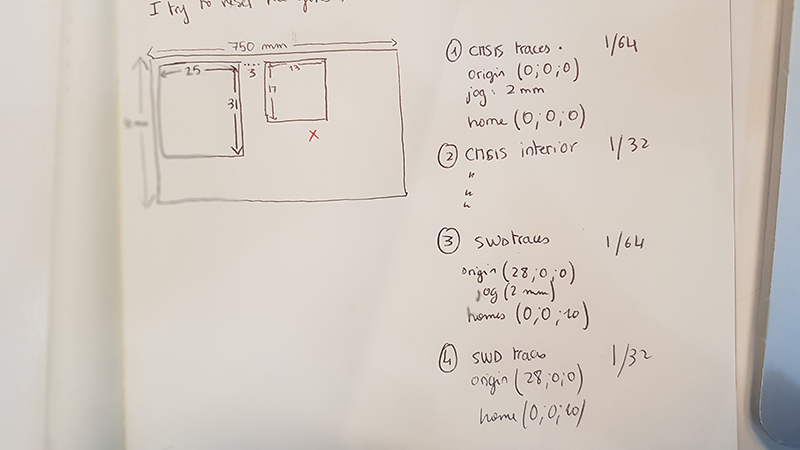 I try to reset the
750 mm
25
3
13
31
17
mm
X
① CMSIS traces. 1/64
origin (0;0;0)
jog: 2 mm
home (0;0;0)
② CMSIS interior 1/32
"
"
"
③ SWD traces 1/64
origin (28;0;0)
jog (2 mm)
homes (0;0;10)
④ SWD traces 1/32
origin (28;0;0)
home (0;0;10)